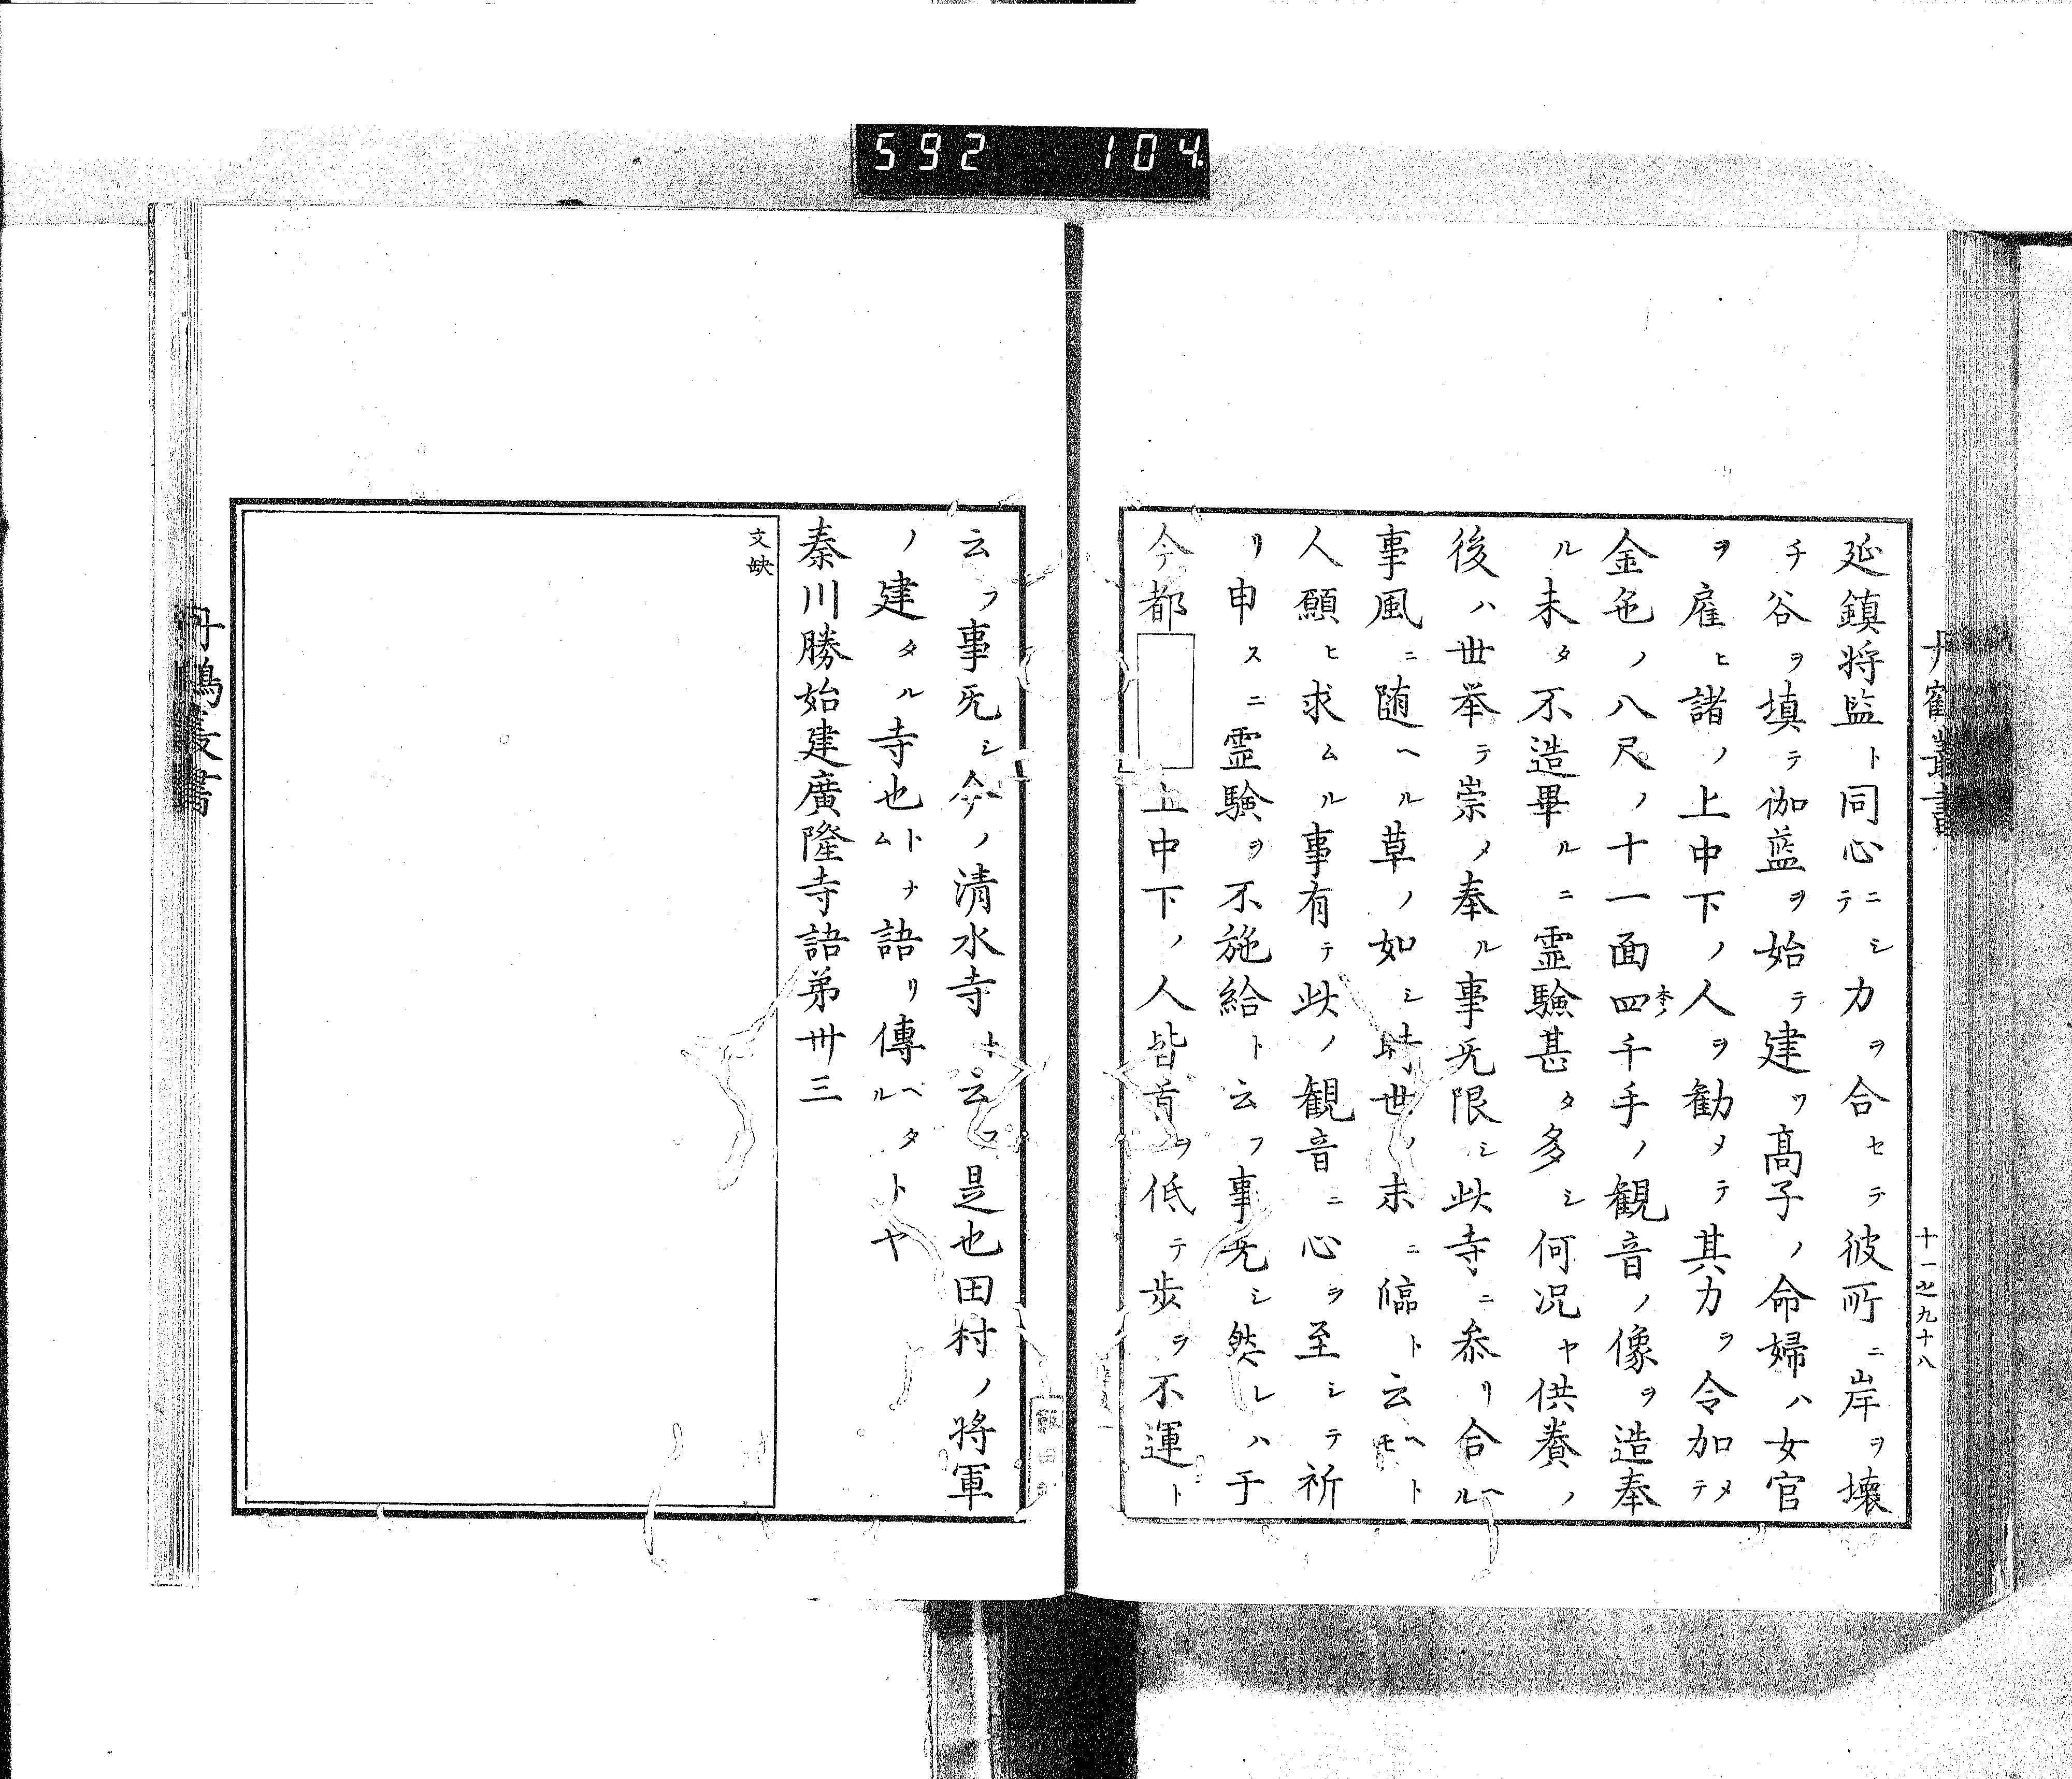 592 104.
丹鶴叢書
十一之九十八
延鎮将監ト同心ニシテ力ヲ合セテ彼所ニ岸ヲ壊
チ谷ヲ填テ伽藍ヲ始テ建ツ高子ノ命婦ハ女官
ヲ雇ヒ諸ノ上中下ノ人ヲ勧メテ其力ヲ令加メテ
金色ノ八尺ノ十一面四千手ノ観音ノ像ヲ造奉
ル未タ不造畢ルニ霊験甚タ多シ何況ヤ供養ノ
後ハ世挙テ崇メ奉ル事旡限シ此寺ニ参リ合ヘル
事風ニ随ヘル草ノ如シ時世ノ末ニ臨ト云ヘトモ
人願ヒ求ムル事有テ此ノ観音ニ心ヲ至シテ祈
リ申スニ霊験ヲ不施給ト云フ事旡シ然レハ于
今都 上中下ノ人皆首ヲ低テ歩ヲ不運ト
云フ事旡シ今ノ清水寺ト云フ是也田村ノ将軍
ノ建タル寺也トナム語リ傳ヘタルトヤ
秦川勝始建廣隆寺語弟卅三
文缺
丹鶴叢書